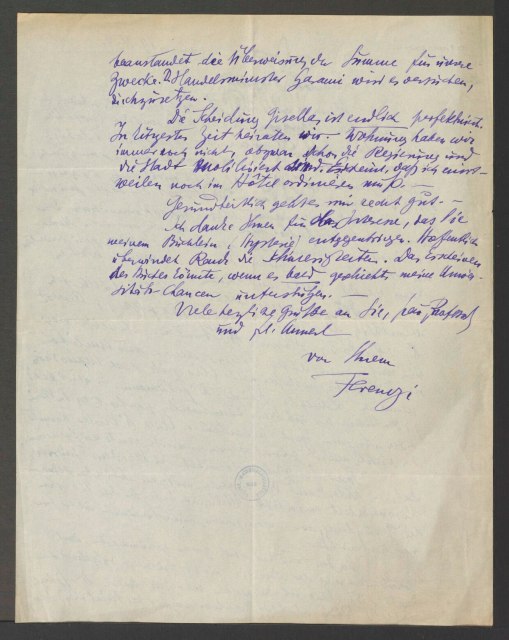 beanstandet die Überweisung der Summe für unsere
Zwecke. Handelsminister Garami wird es versuchen,
durchzusetzen.
Die Scheidung Gisellas ist endlich perfektuiert.
In kürzester Zeit heiraten wir. – Wohnung haben wir
immer noch nicht, obzwar schon die Regierung und
die Stadt mobilisiert sind. Scheint, daß ich einst-
weilen noch im Hôtel ordinieren muß. –
Gesundheitlich geht es mir recht gut. –
Ich danke Ihnen für das Interesse, das Sie
meinem Büchlein (Hysterie) entgegenbringen. Hoffentlich
überwindet Rank die Schwierigkeiten. Das Erscheinen
des Buches könnte, wenn es bald geschieht, meine Univer-
sitäts-Chancen unterstützen. –
Viele herzliche Grüße an Sie, Frau Professor
und Frl. Annerl
von Ihrem
Ferenczi